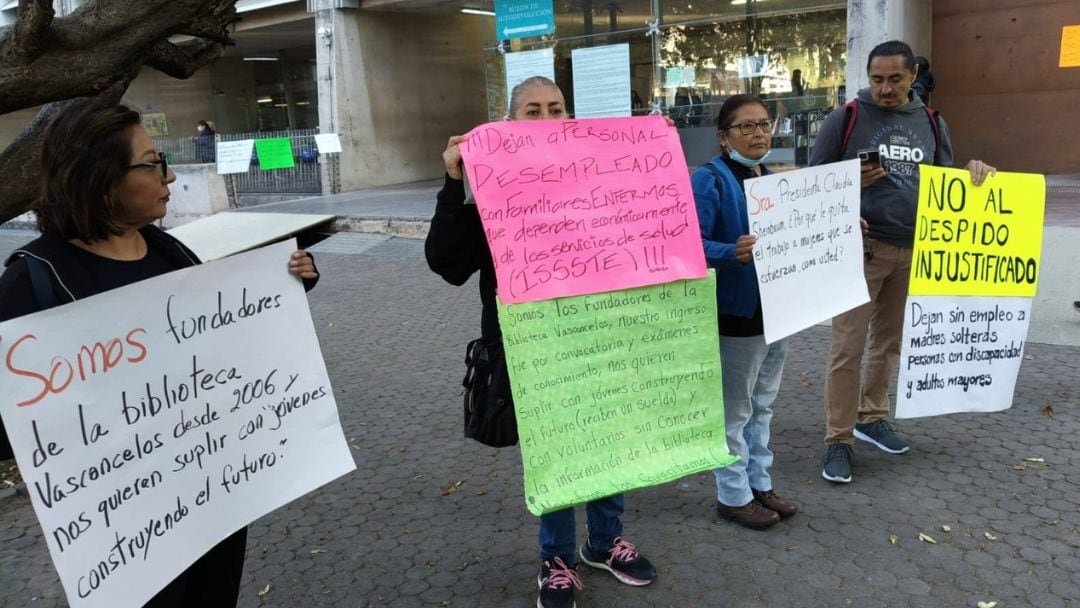 BUZÓN DE
AUTODEVOLUCIÓN
Somos fundadores
de la biblioteca
Vasconcelos desde 2006 y
nos quieren suplir con "jóvenes
construyendo el futuro."
¡¡¡Dejan a PERSONAL
DESEMPLEADO
con familiares ENFERMOS,
que dependen económicamente
de los servicios de salud
(ISSSTE)!!!
Somos los fundadores de la
Biblioteca Vasconcelos, nuestro ingreso
fue por convocatoria y exámenes
de conocimiento, nos quieren
suplir con jóvenes construyendo
el futuro (reciben un sueldo) y
con voluntarios sin conocer
la información de la biblioteca
Sra. Presidenta Claudia
Shenbaum, ¿Por qué le quita
el trabajo a mujeres que se
esfuerzan, como usted?
AERO
1987
NO AL
DESPIDO
INJUSTIFICADO
Dejan sin empleo a
madres solteras
personas con discapacidad
y adultos mayores